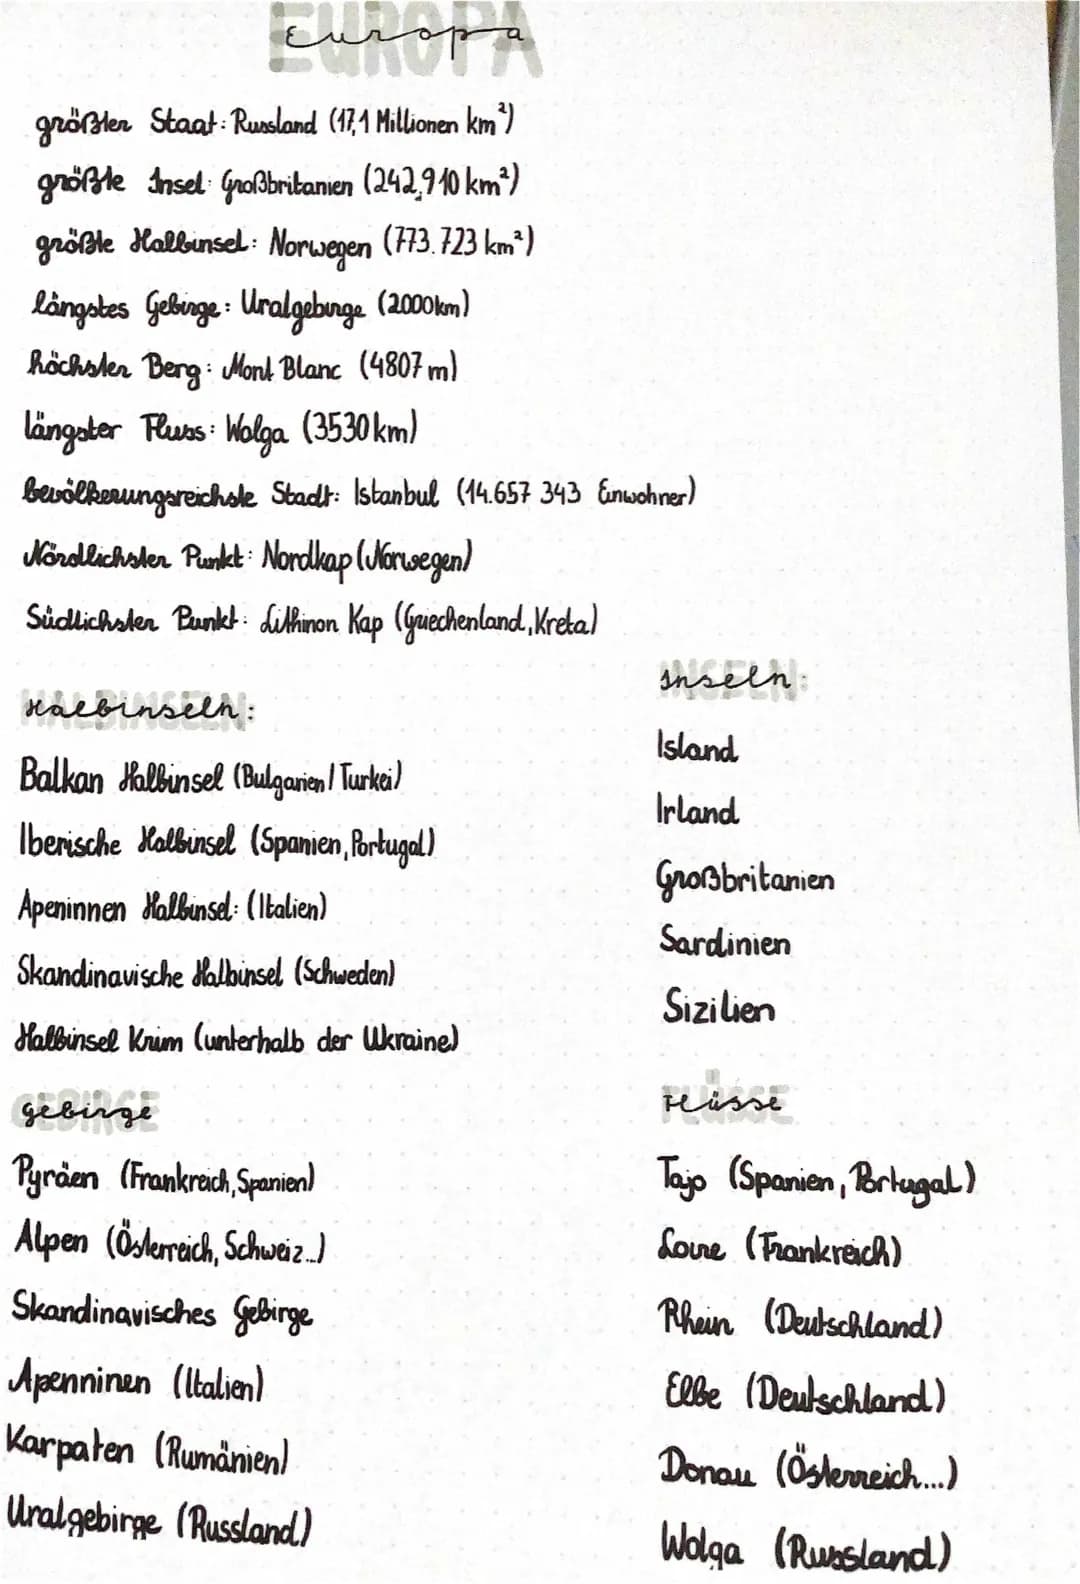 Europa
größter Staat: Russland (17,1 Millionen km²)
größte Insel: Großbritanien (242,910 km²)
größte Halbinsel: Norwegen (773.723 km²)
längstes Gebirge: Uralgebirge (2000km)
höchster Berg: Mont Blanc (4807 m)
längster Fluss: Wolga (3530 km)
bevölkerungsreichste Stadt: Istanbul (14.657 343 Einwohner)
Nördlichster Punkt: Nordkap (Norwegen)
Südlichster Punkt: Lithinon Kap (Griechenland, Kreta)
Halbinseln:
Balkan Halbinsel (Bulgarien / Türkei)
Iberische Halbinsel (Spanien, Portugal)
Apeninnen Halbinsel: (Italien)
Skandinavische Halbinsel (Schweden)
Halbinsel Krim (unterhalb der Ukraine)
Inseln:
Island
Irland
Großbritanien
Sardinien
Sizilien
Gebirge
Pyräen (Frankreich, Spanien)
Alpen (Österreich, Schweiz...)
Skandinavisches Gebirge
Apenninen (Italien)
Karpaten (Rumänien)
Uralgebirge (Russland)
Flüsse
Tajo (Spanien, Portugal)
Loire (Frankreich)
Rhein (Deutschland)
Elbe (Deutschland)
Donau (Österreich...)
Wolga (Russland)